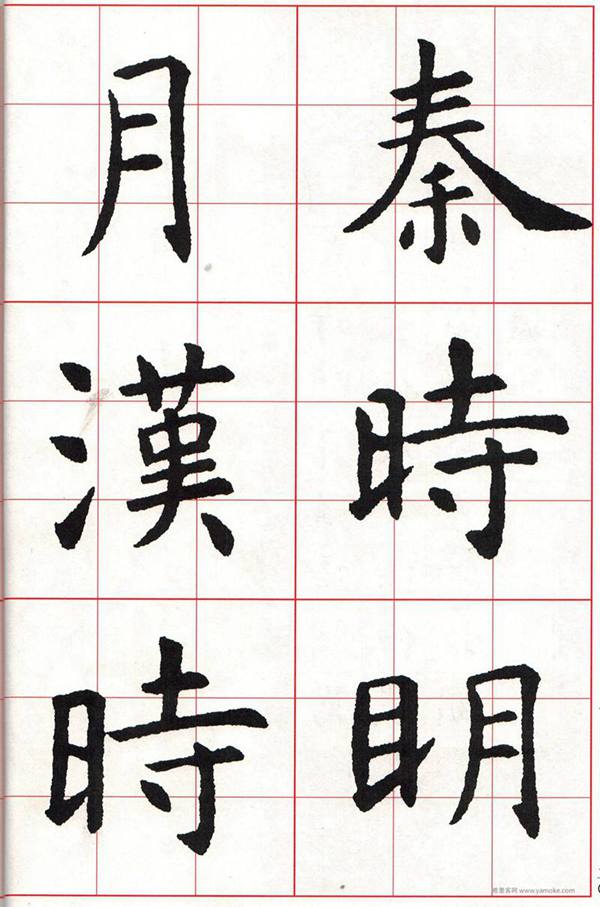 秦時明
月漢時
雅墨客网 www.yamoke.com